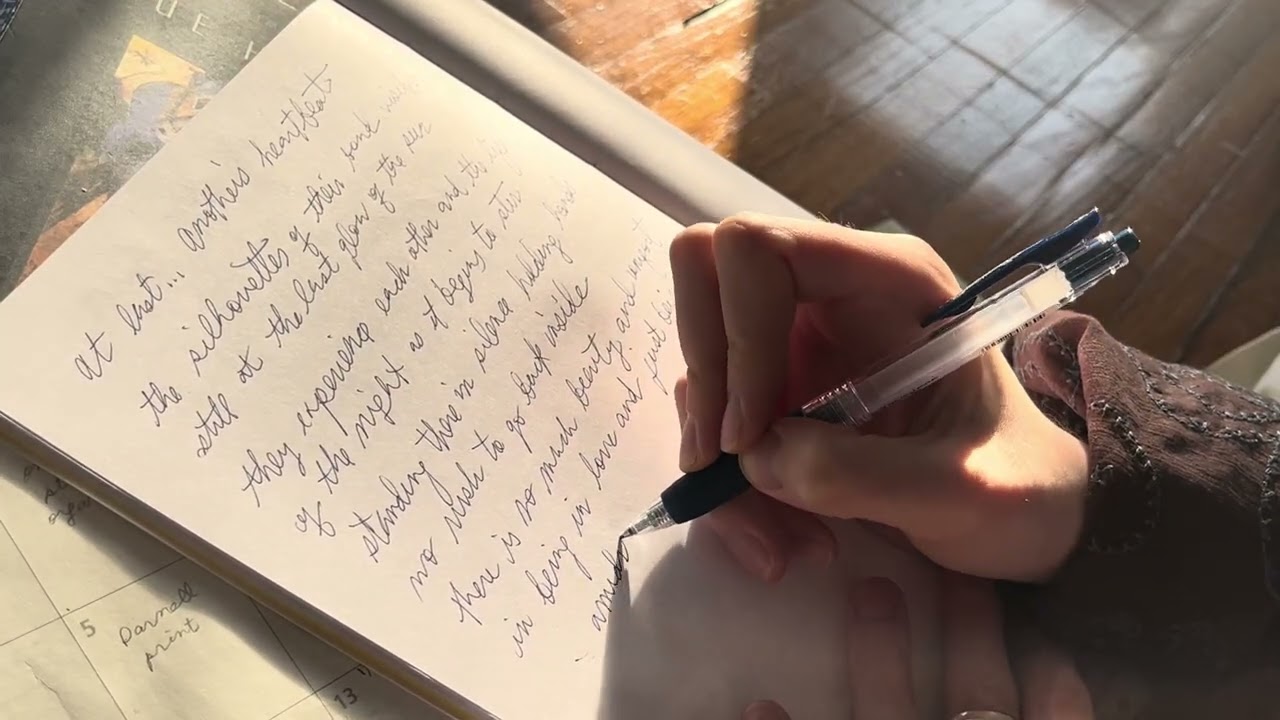 at last... another's heartbeat
the silhouettes of their bond
still at the last glow of the
they experience each other and the
of the night as it begins to
standing there in silence holding hand
no rush to go back inside
there is so much beauty and
in being in love and just
amid
5
Darnell
print
13